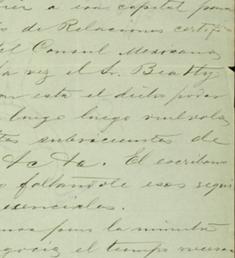 a esa capital para
de Relaciones certifi
del Consul Mexicano
la vez el Sr. Beatty
esta el dicho poder
luego luego vuelvala
subsecuentes de
&c &a. El escribano
faltandole esos requi
esenciales.
para la minuta
el tiempo necesa